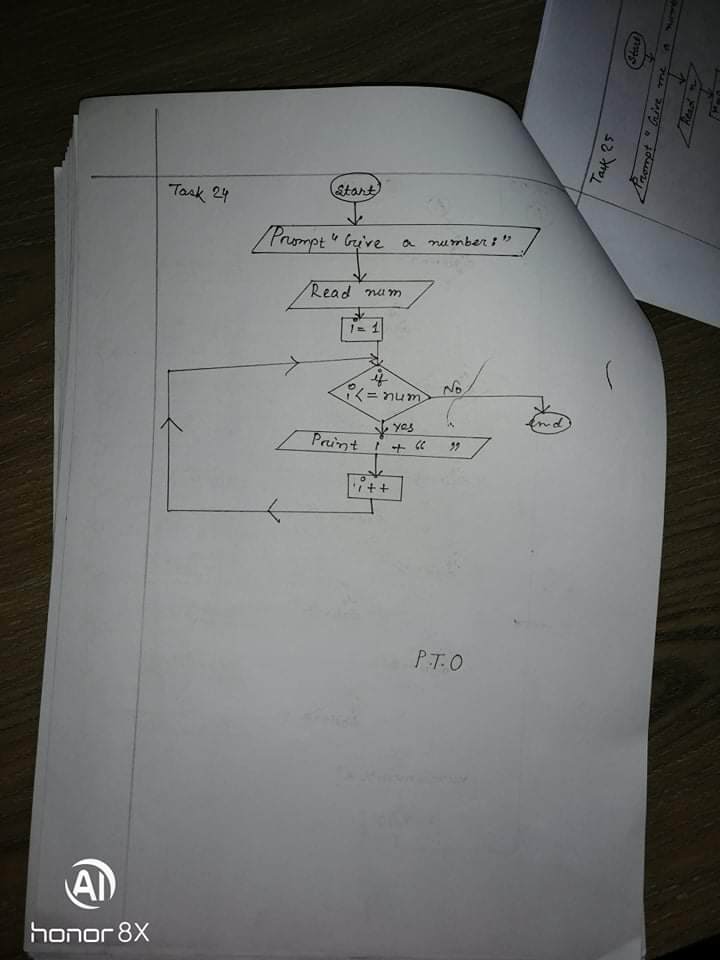 Task 24
Start
Prompt "Give a number:"
Read num
i = 1
if
i <= num
No
end
yes
Print i + " "
i++
P.T.O
Task 25
Start
Prompt "Give me a
Read n
AI
honor 8X